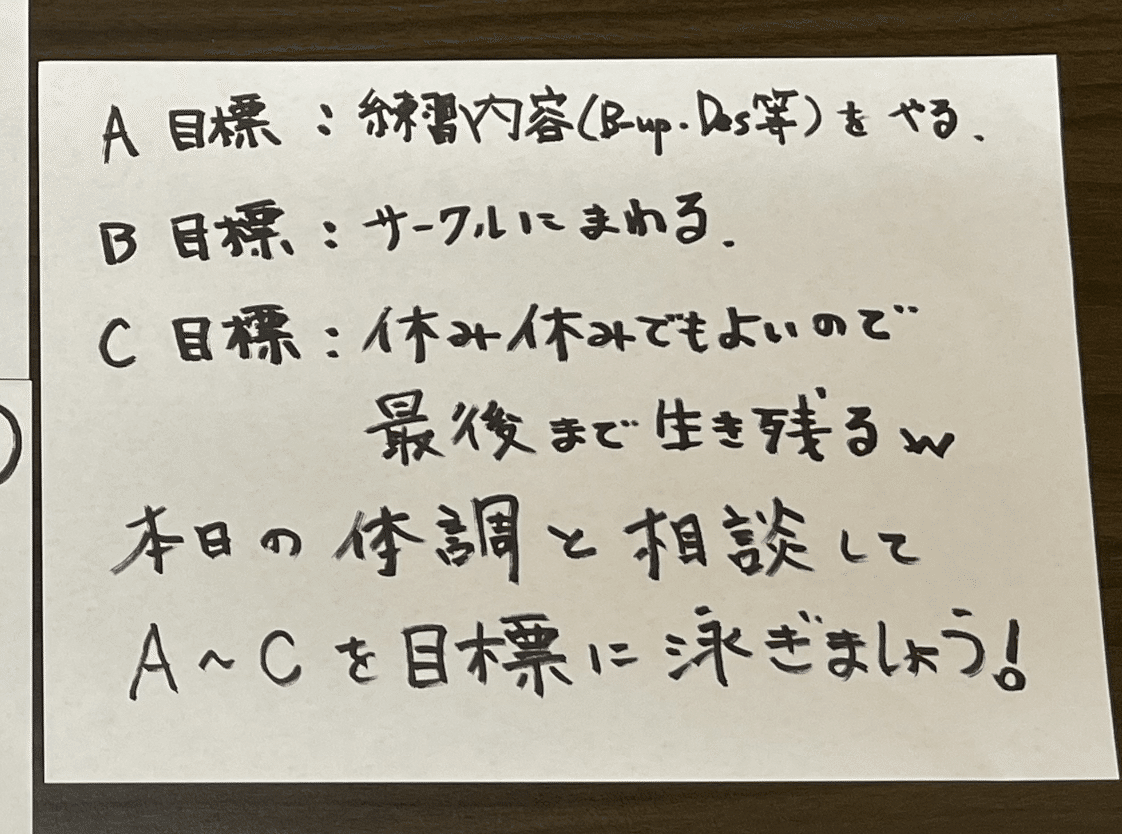 A 目標：練習内容(B-up・Des等)をやる.
B 目標：サークルにまわる.
C 目標：休み休みでもよいので
最後まで生き残るw
本日の体調と相談して
A〜Cを目標に泳ぎましょう!